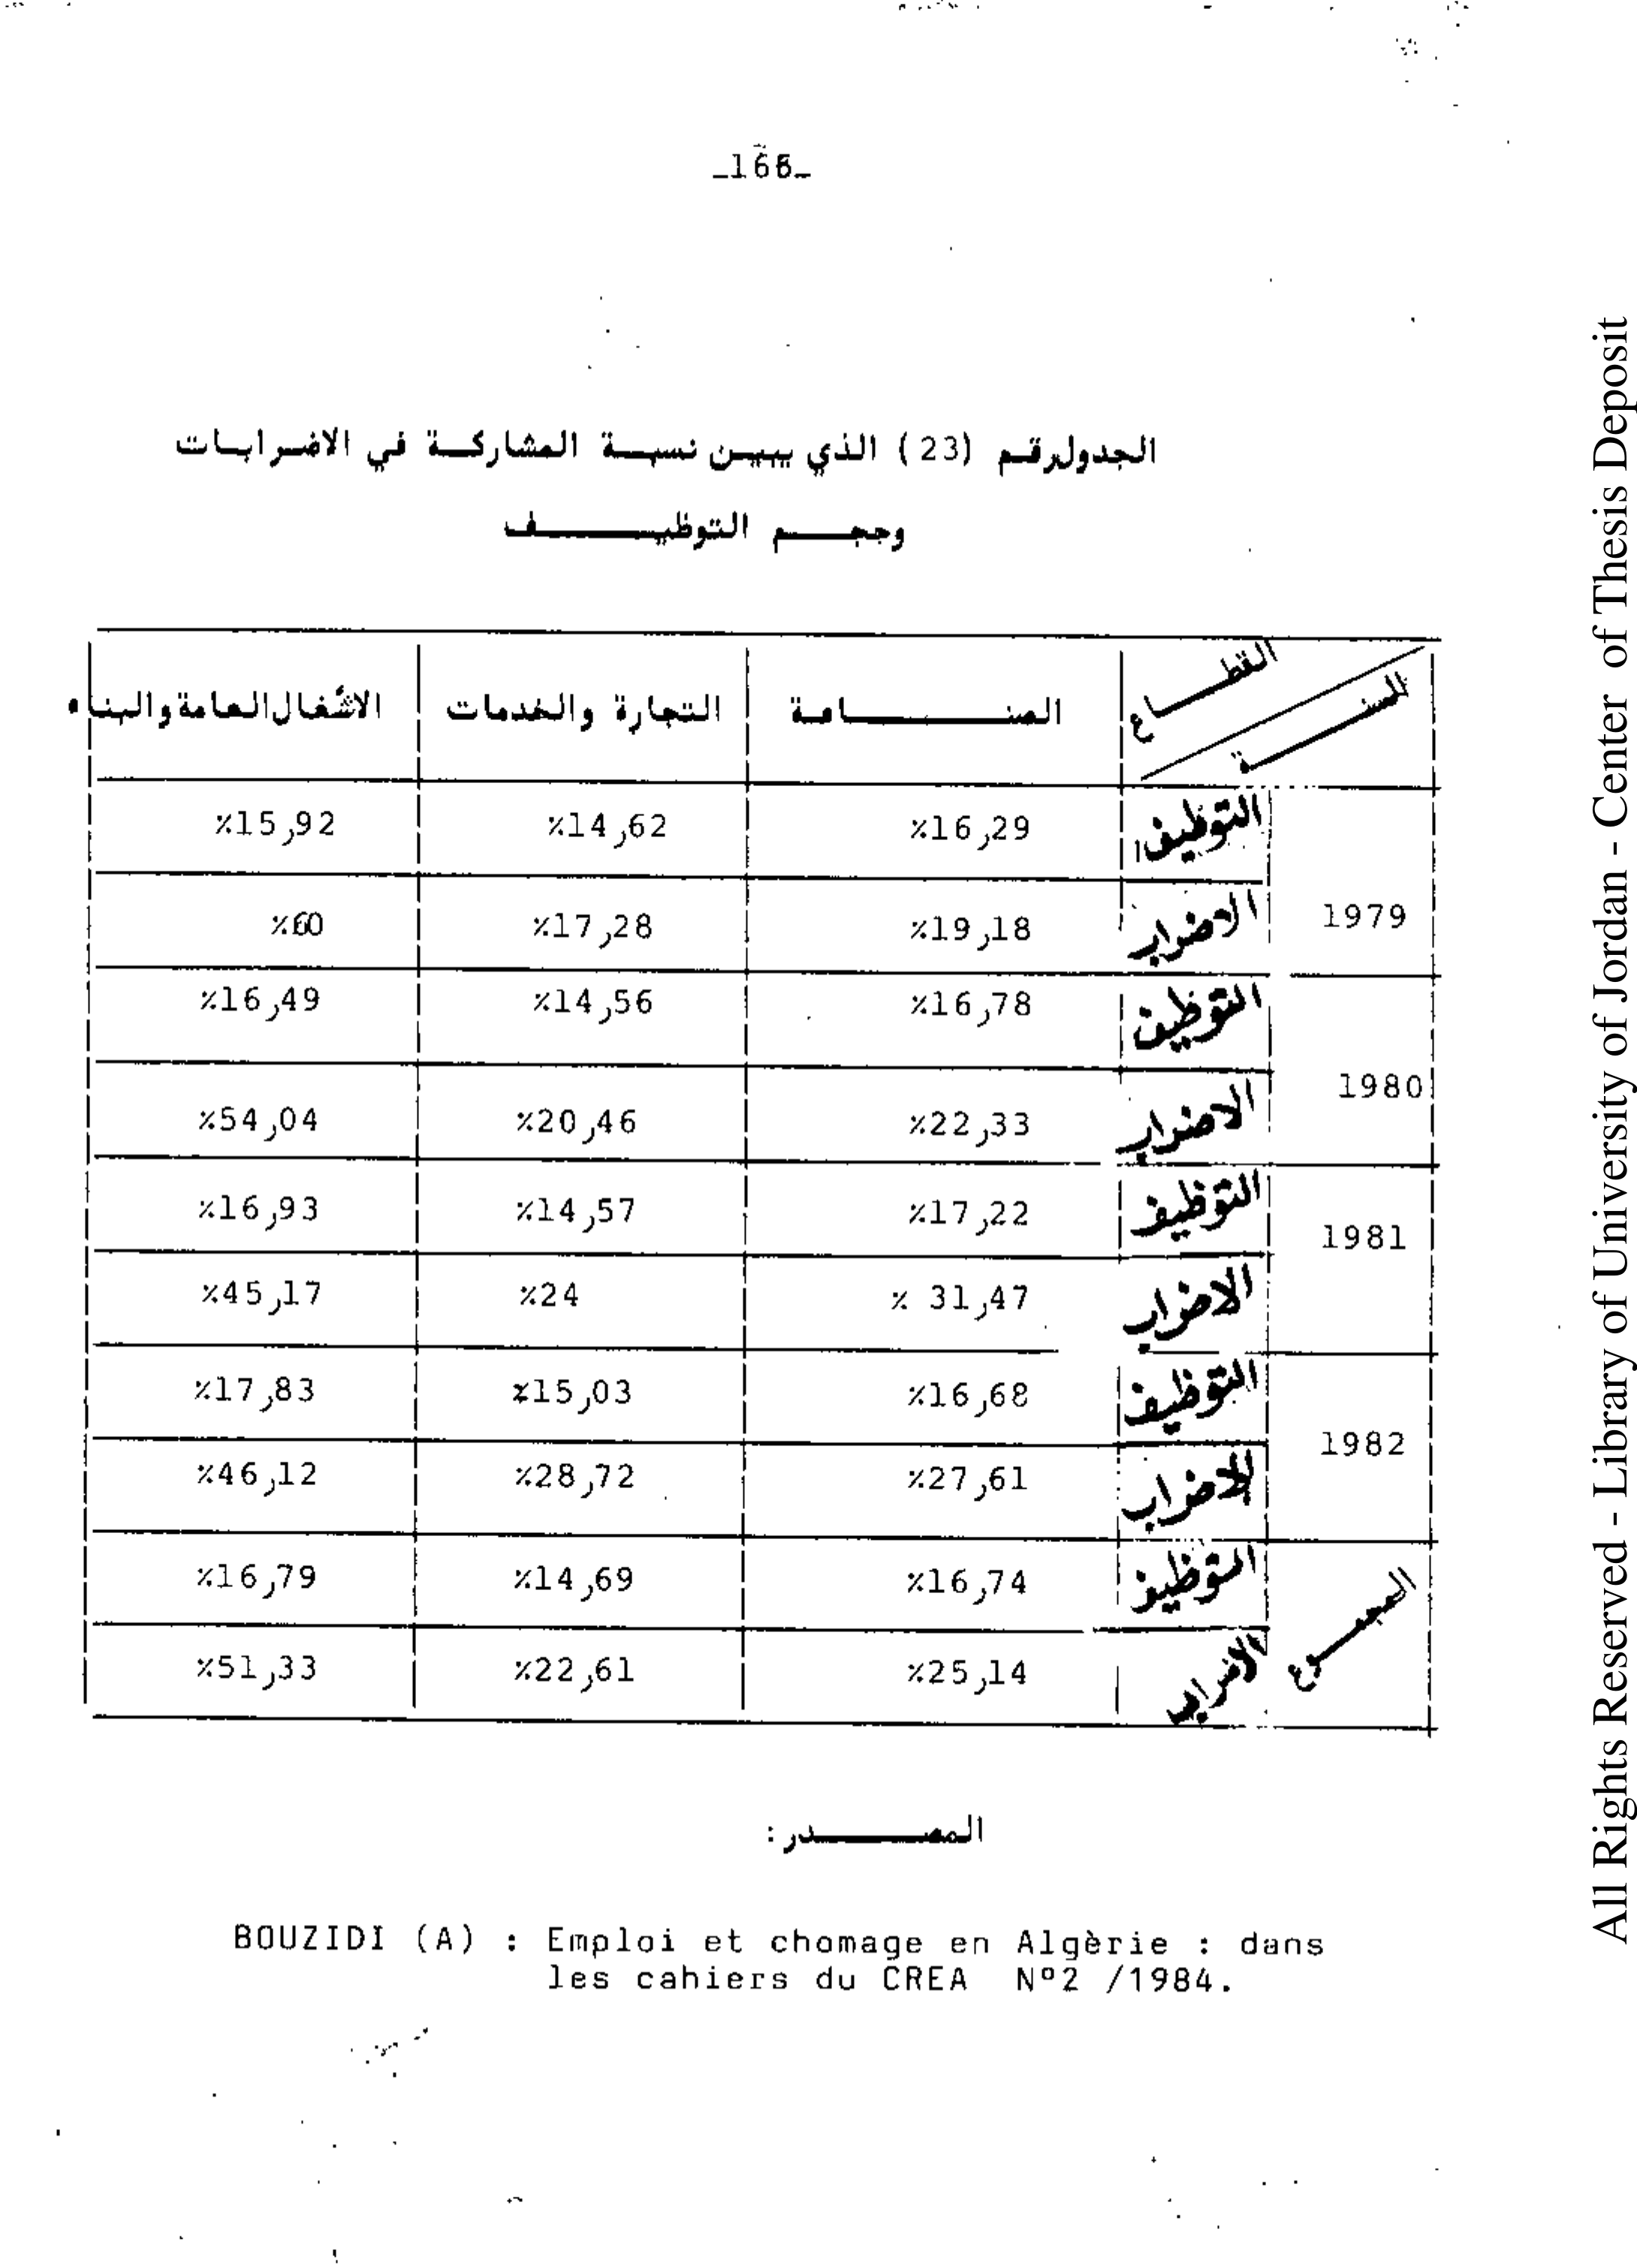 _166_
الجدول رقم (23) الذي يبين نسبة المشاركة في الاضرابات
وحجم التوظيف
القطاع
السنة
الصناعة
التجارة والخدمات
الاشغال العامة والبناء
1979
التوظيف %16,29 %14,62 %15,92
الاضراب %19,18 %17,28 %60
1980
التوظيف %16,78 %14,56 %16,49
الاضراب %22,33 %20,46 %54,04
1981
التوظيف %17,22 %14,57 %16,93
الاضراب % 31,47 %24 %45,17
1982
التوظيف %16,68 %15,03 %17,83
الاضراب %27,61 %28,72 %46,12
المجموع
التوظيف %16,74 %14,69 %16,79
الاضراب %25,14 %22,61 %51,33
المصدر:
BOUZIDI (A) : Emploi et chomage en Algèrie : dans
les cahiers du CREA Nº2 /1984.
All Rights Reserved - Library of University of Jordan - Center of Thesis Deposit